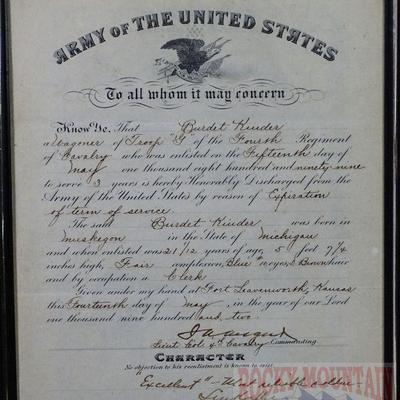 ARMY OF THE UNITED STATES
To all whom it may concern
Know Ye, That Burdet Kinder
a Wagoner of Troop "G" of the Fourth Regiment
of Cavalry who was enlisted on the Fifteenth day of
May one thousand eight hundred and ninety-nine
to serve 3 years is hereby Honorably Discharged from the
Army of the United States by reason of Expiration
of term of service.
The said Burdet Kinder was born in
Muskegon in the State of Michigan
and when enlisted was 21 1/2 years of age, 5 feet 7 3/4
inches high, Fair complexion, Blue eyes, Brown hair
and by occupation a Clerk
Given under my hand at Fort Leavenworth, Kansas
this Fourteenth day of May, in the year of our Lord
one thousand nine hundred and two.
Lieut Col 4th Cavalry Commanding.
CHARACTER
No objection to his reenlistment is known to exist
"Excellent" - Most reliable soldier
ROCKY MOUNTAIN